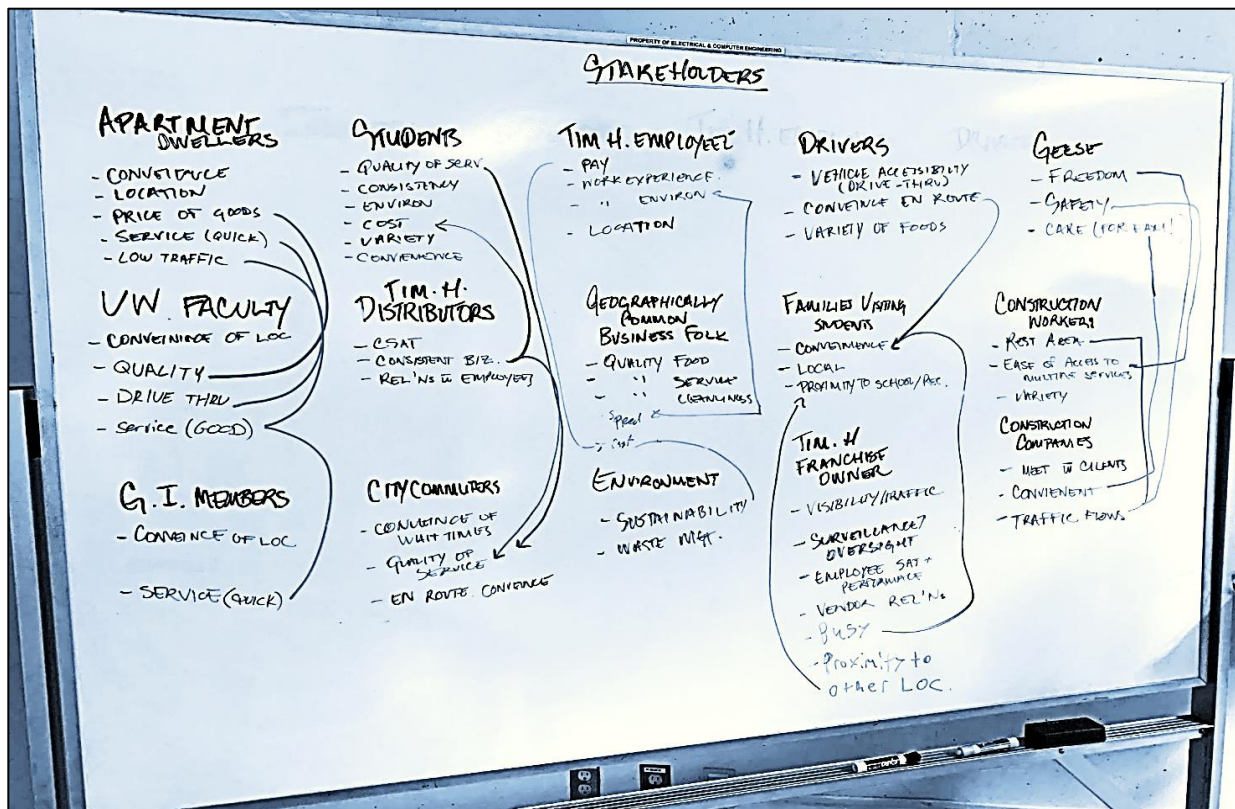 PROPERTY OF ELECTRICAL & COMPUTER ENGINEERING
STAKEHOLDERS
APARTMENT
DWELLERS
- CONVEIENCE
- LOCATION
- PRICE OF GOODS
- SERVICE (QUICK)
- LOW TRAFFIC
UW. FACULTY
- CONVEININCE OF LOC
- QUALITY
- DRIVE THRU
- Service (GOOD)
G.I. MEMBERS
- CONVEINCE OF LOC
- SERVICE (QUICK)
STUDENTS
- QUALITY OF SERV.
- CONSISTENCY
- ENVIRON
- COST
- VARIETY
- CONVENIENCE
TIM. H.
DISTRIBUTORS
- CSAT
- CONSISTENT BIZ.
- REL'NS W EMPLOYEES
CITY COMMUTERS
- CONVEINCE OF
WAIT TIMES
- QUALITY OF
SERVICE
- EN ROUTE CONVEINCE
TIM H. EMPLOYEES
- PAY
- WORK EXPERIENCE.
- " ENVIRON
- LOCATION
GEOGRAPHICALLY
COMMON
BUSINESS FOLK
- QUALITY FOOD
- " SERVICE
- " CLEANLINESS
Speed
- Cost
ENVIRONMENT
- SUSTAINABILITY
- WASTE MGT.
DRIVERS
- VEHICLE ACCESSIBILITY
(DRIVE-THRU)
- CONVEINCE EN ROUTE
- VARIETY OF FOODS
FAMILIES VISITING
STUDENTS
- CONVEINIENCE
- LOCAL
- PROXIMITY TO SCHOOL/REC.
TIM. H
FRANCHISE
OWNER
- VISIBILITY/TRAFFIC
- SURVEILLANCE/
OVERSIGHT
- EMPLOYEE SAT +
PERFORMACE
- VENDOR REL'NS
- Busy
- Proximity to
other LOC.
GEESE
- FREEDOM
- SAFETY
- CARE (FOR
CONSTRUCTION
WORKERS
- REST AREA
- EASE OF ACCESS TO
MULTIPLE SERVICES
- VARIETY
CONSTRUCTION
COMPANIES
- MEET W CLIENTS
- CONVIENENT
- TRAFFIC FLOWS